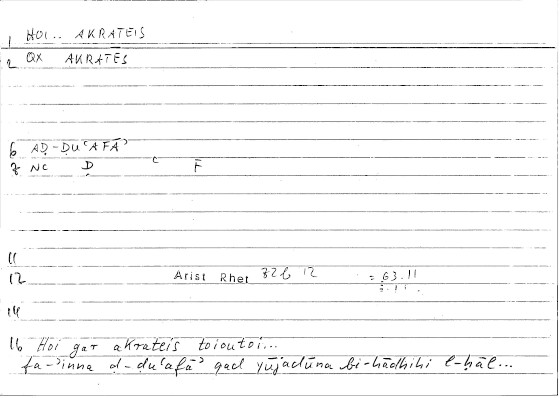 1 HOI.. AKRATEIS
2 QX AKRATĒS
6 AḌ-ḌUʿAFĀʾ
7 NC Ḍ ʿ F̄
11
12 Arist Rhet 72b 12 = 63.11
14
16 Hoi gar akrateis toioutoi...
fa-ʾinna ḍ-ḍuʿafāʾ qad yūjadūna bi-hādhihi l-ḥāl...